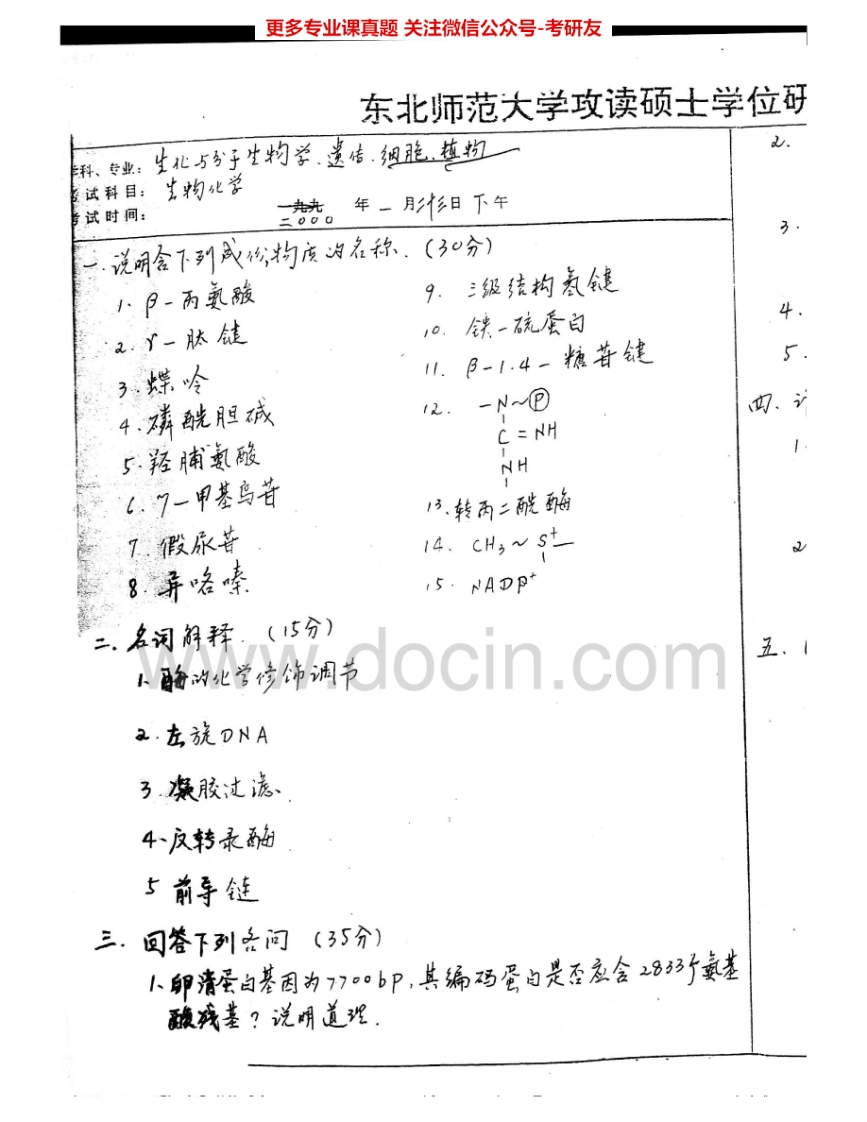 更多专业课真题 关注微信公众号-考研友
东北师范大学攻读硕士学位研
学科、专业: 生化与分子生物学、遗传、细胞、植物
考试科目: 生物化学
考试时间: 二000 年 一 月 日 下午
一. 说明含下列成份物质的名称. (30分)
1. β-丙氨酸
2. γ-肽键
3. 蝶呤
4. 磷酰胆碱
5. 羟脯氨酸
6. 7-甲基鸟苷
7. 假尿苷
8. 异咯嗪.
9. 三级结构氢键
10. 铁-硫蛋白
11. β-1.4-糖苷键
12. -N~Ⓟ
C=NH
NH
13. 转丙二酰酶
14. CH₃~S⁺-
15. NADP⁺
二. 名词解释. (15分)
1. 酶的化学修饰调节
2. 左旋DNA
3. 凝胶过滤.
4. 反转录酶.
5 前导链
三. 回答下列各问 (35分)
1. 卵清蛋白基因为7700bp, 其编码蛋白是否应含2833个氨基
酸残基? 说明道理.
2.
3.
4.
5.
四.
1
2
五.
www.docin.com